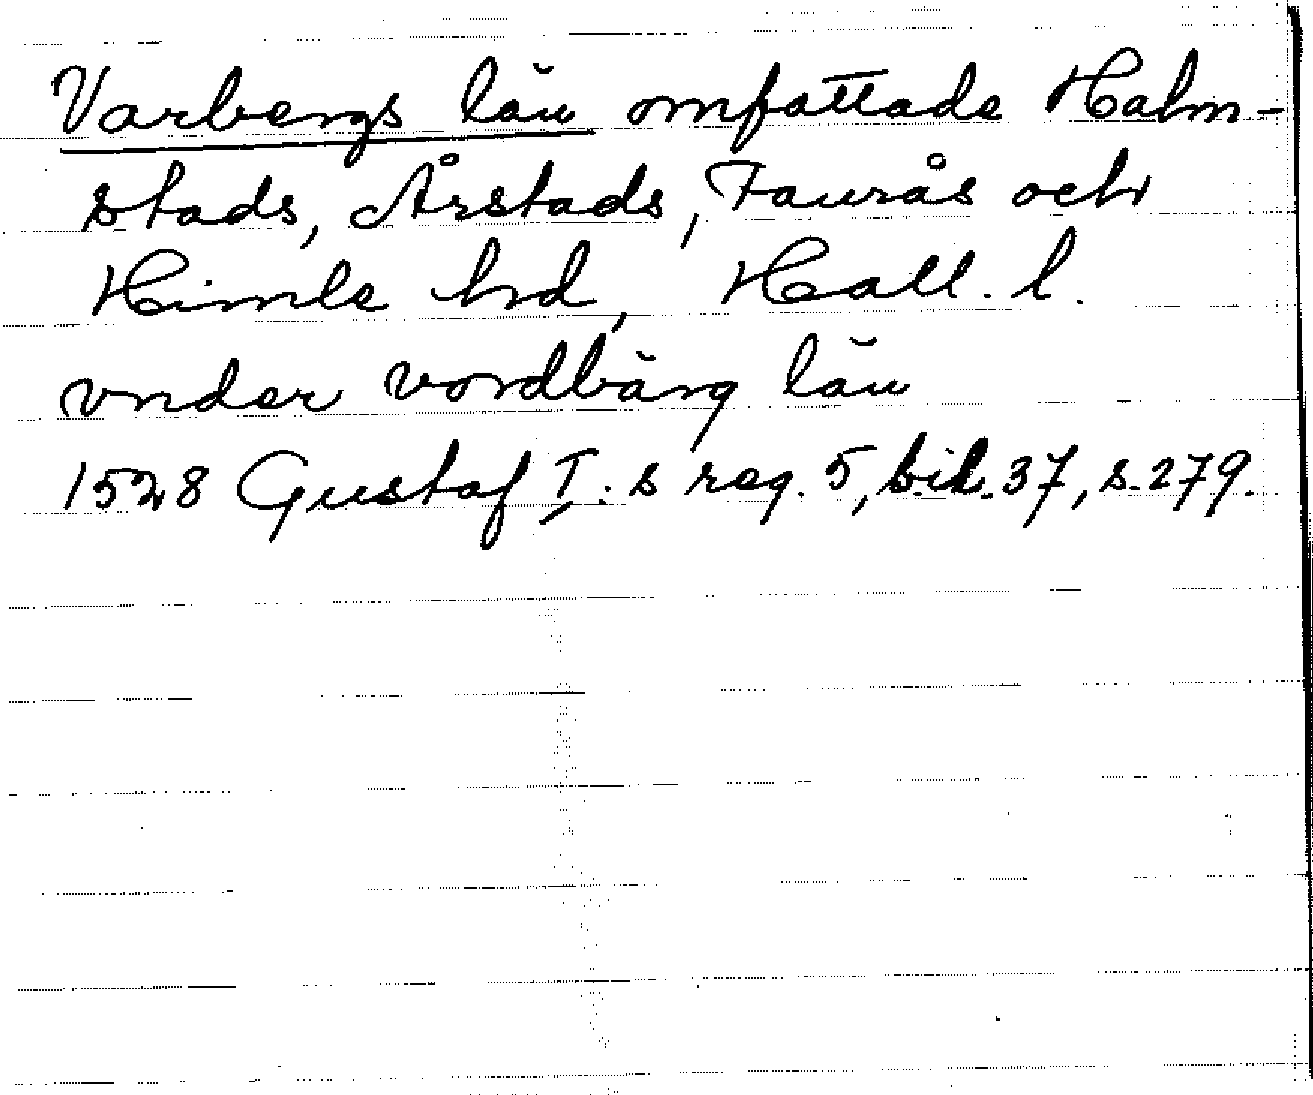 Varbergs län omfattade Halm-
stads, Årstads, Faurås och
Himle hrd, Hall. l.
vnder vordbärg län
1528 Gustaf I:s reg. 5, bil. 37, s. 279.